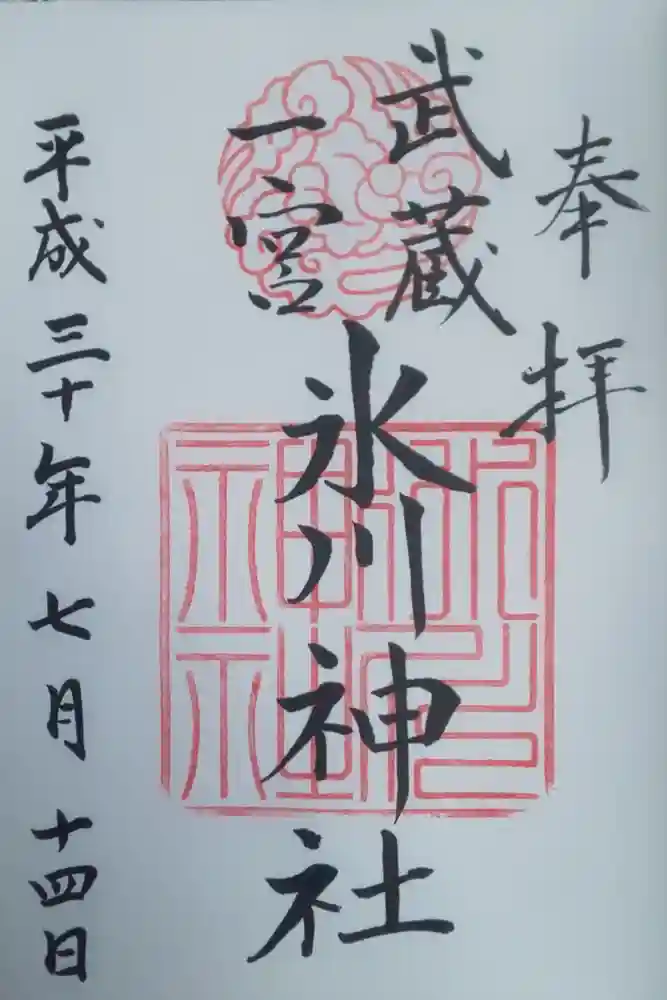 奉拝
武蔵
一宮
氷川神社
平成三十年七月十四日
氷川
神社